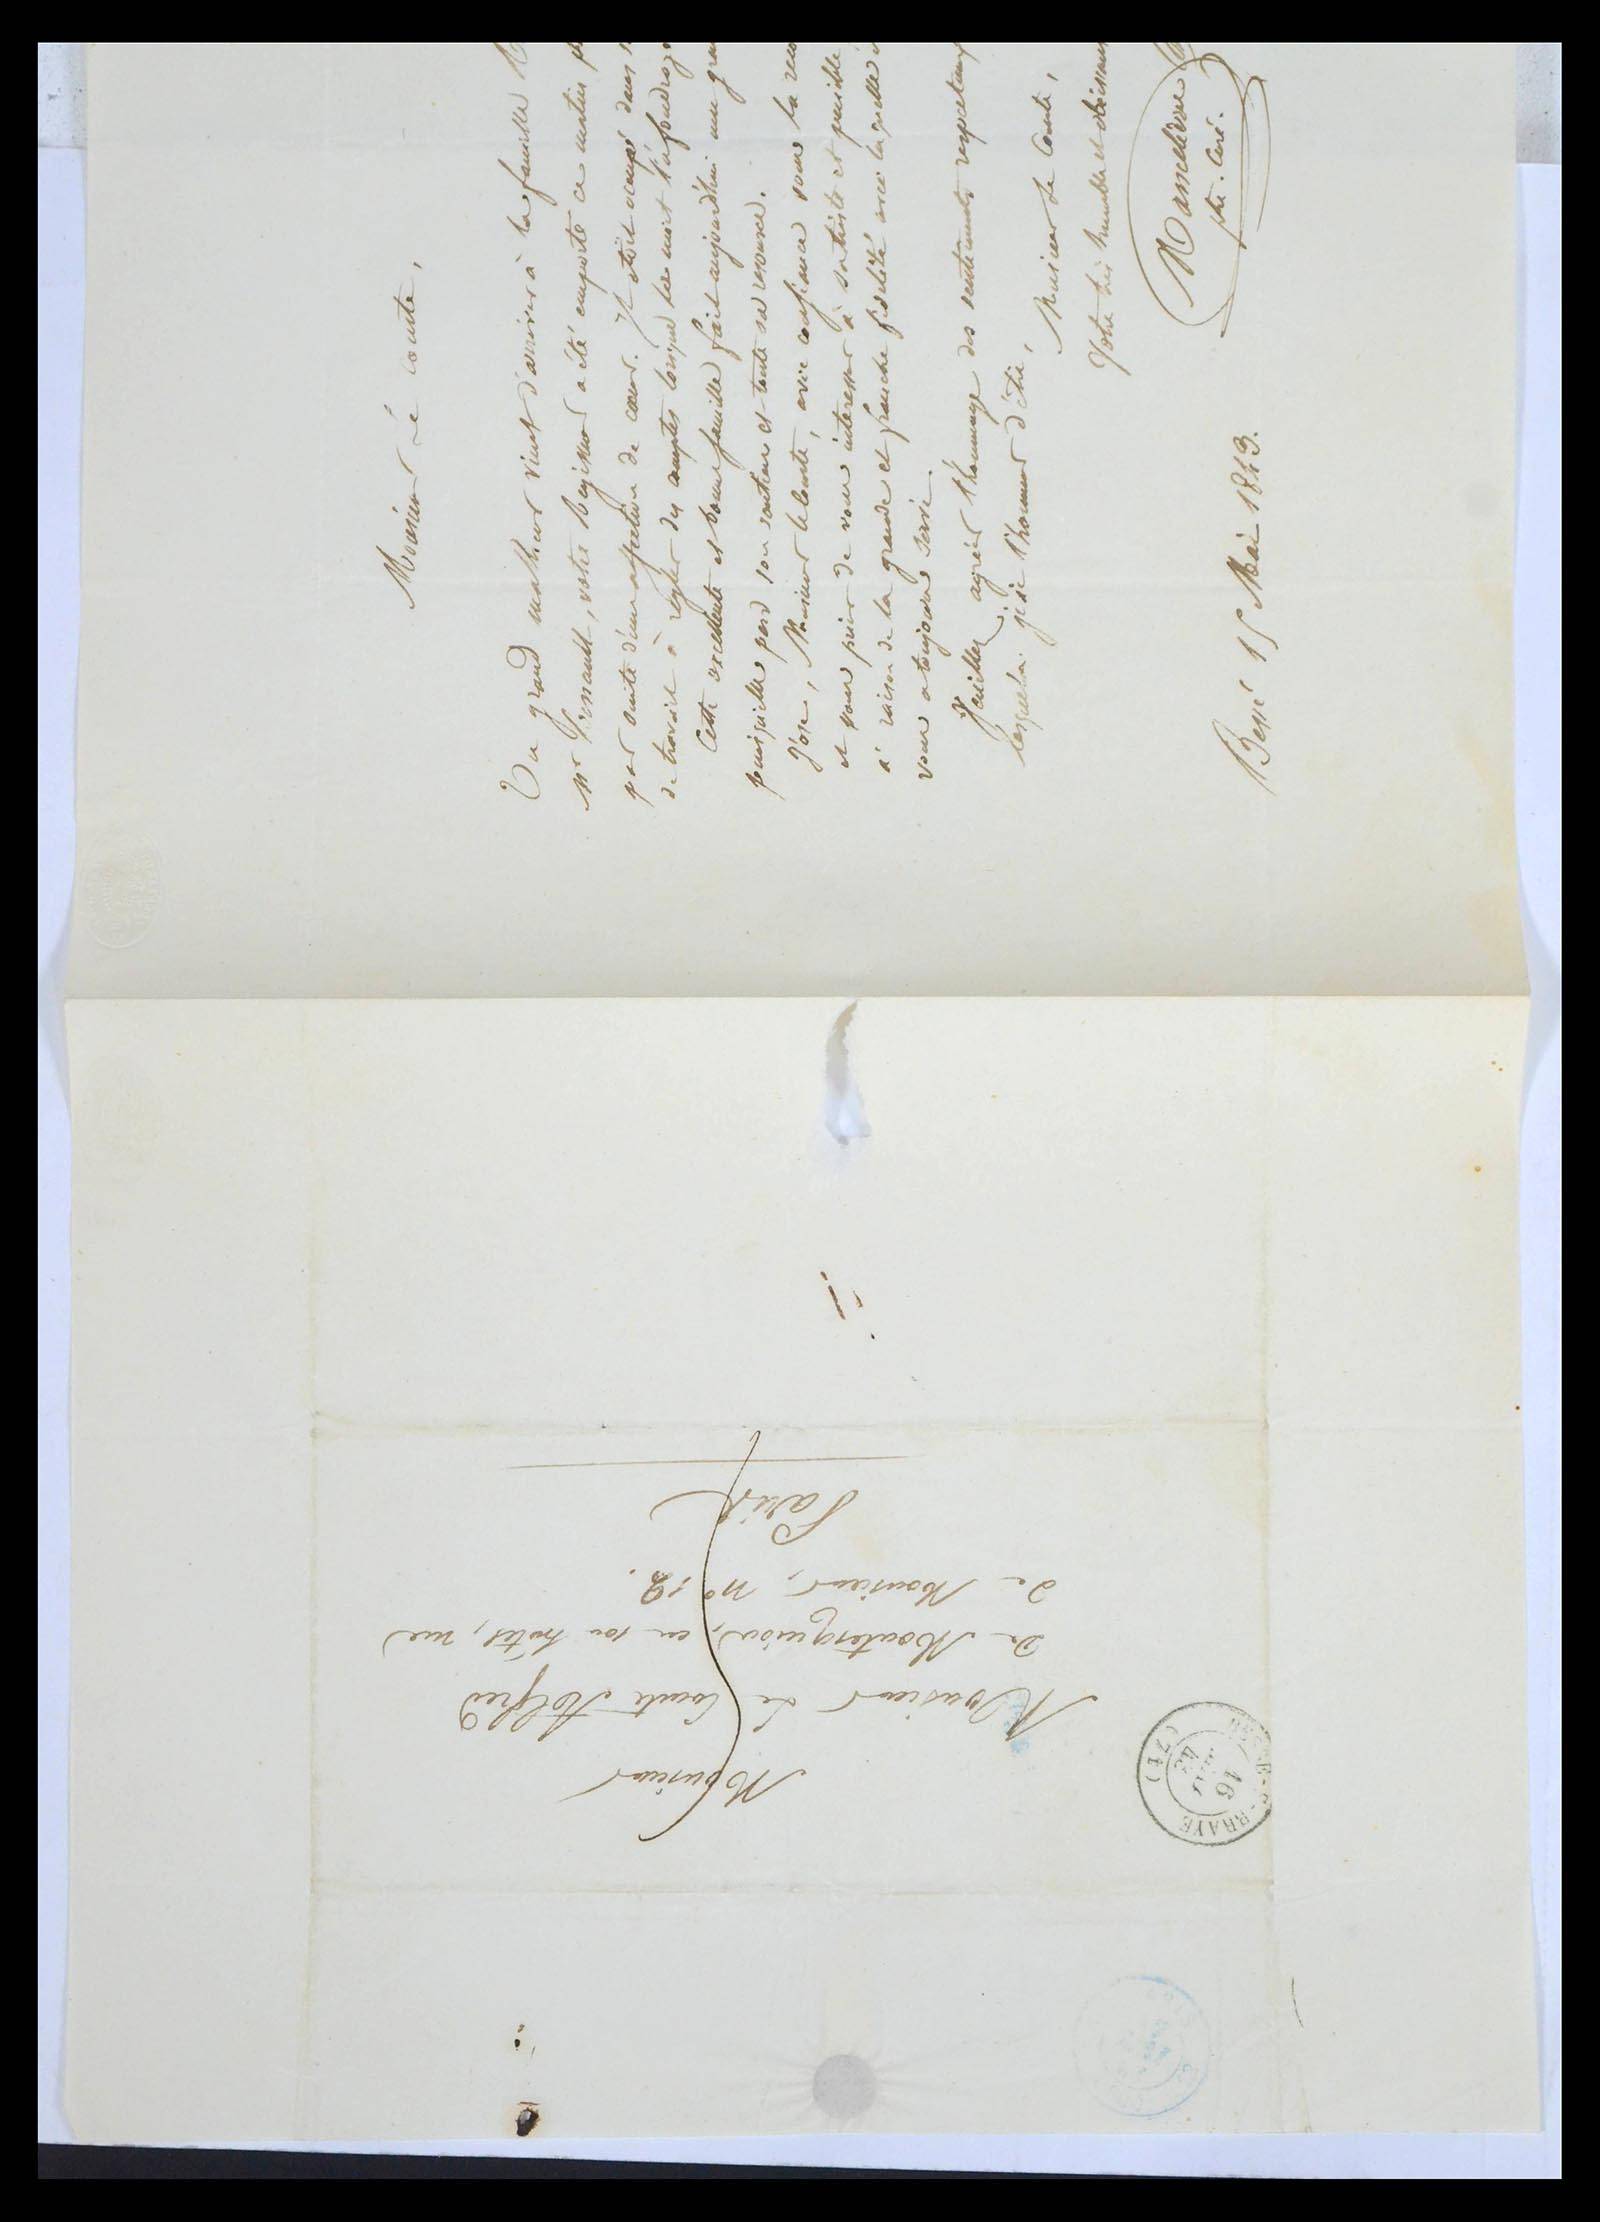 Monsieur Le comte,
Un grand malheur vient d'arriver à la famille
Mr , votre Régisseur a été emporté ce matin
par suite d'une affection de cœur. Il étoit occupé dans
de travail à régler des comptes lorsque la mort l'a
Cette excellente et bonne famille fait aujourd'hui une
puisqu'elle perd son soutien et toute sa ressource.
J'ose, Monsieur le Comte, avec confiance vous la
et vous prier de vous intéresser à sa triste et pénible
à raison de la grande et franche fidélité avec laquelle
vous a toujours servi.
Veuillez agréer l'hommage des sentiments respectueux
lesquels j'ai l'honneur d'être,
Monsieur Le Comte,
Votre très humble et obéissant
ptre. Curé.
Bessé 15 Mai 1843.
Monsieur
Monsieur Le Comte Alfred
De Montesquiou, en son hôtel, rue
De Monsieur, no 12.
Paris
-BRAYE
16
MAI
43
(71)